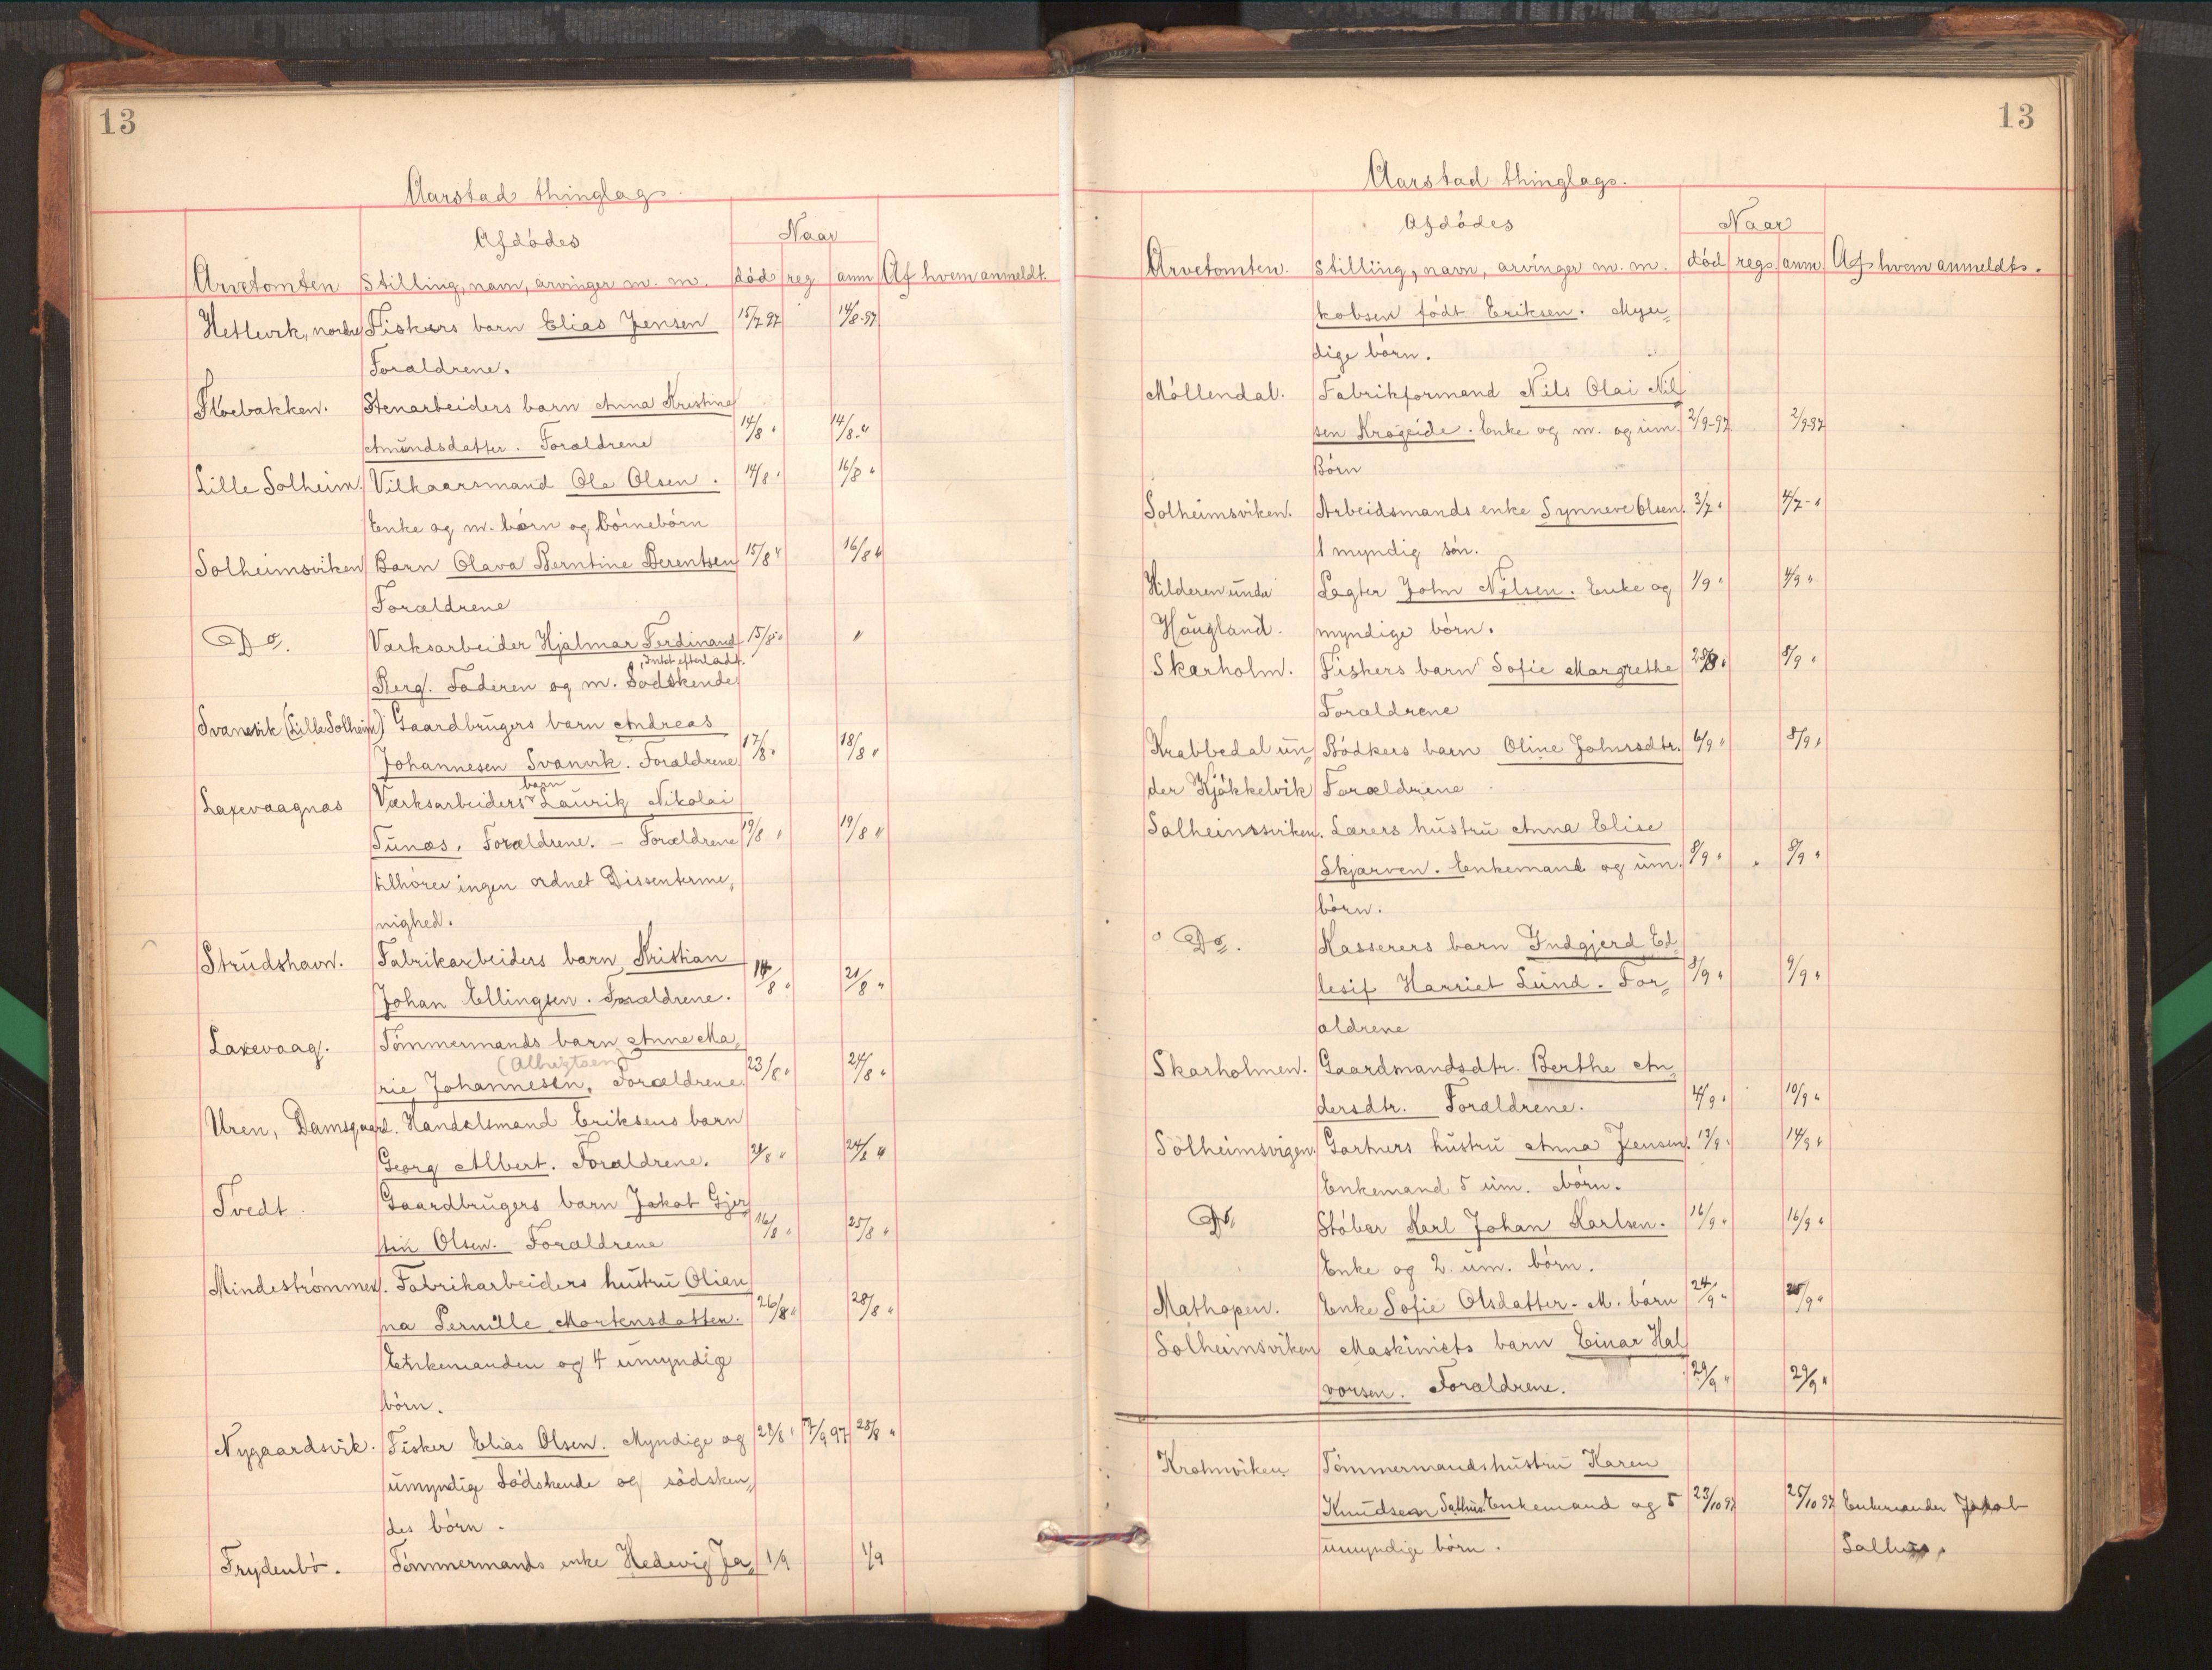 13
Aarstad thinglag
Afdödes
Naar
Arvetomten
Stilling, navn, arvinger m. m.
död
reg.
anm
Af hvem anmeldt.
Hetlevik, nordre Fiskers barn Elias Jensen 15/7 97 14/8-97
Forældrene.
Floebakken. Stenarbeiders barn Anna Kristine
Amundsdatter. Forældrene 14/8 " 14/8 "
Lille Solheim. Vilkaarsmand Ole Olsen. 14/8 " 16/8 "
Enke og m. börn og börnebörn
Solheimsviken Barn Olava Berntine Berentsen 15/8 " 16/8 "
Forældrene
Do. Værksarbeider Hjalmar Ferdinand 15/8 " "
, Intet efterladt.
Berg. Faderen og m. Södskende
Svanevik (Lille Solheim) Gaardbrugers barn Andreas
Johannesen Svanvik. Forældrene 17/8 " 18/8 "
barn
Laxevaagnæs Værksarbeiders Laurik Nikolai
Tunæs. Forældrene. - Forældrene 19/8 " 19/8 "
tilhörer ingen ordnet Dissenterme„
nighed.
Strudshavn. Fabrikarbeiders barn Kristian
Johan Ellingsen. Forældrene. 14/8 " 21/8 "
Laxevaag. Tömmermands barn Anne Ma„
(Albrigtsen)
rie Johannesen, Forældrene. 23/8 " 24/8 "
Uren, Damsgaard. Handelsmand Eriksens barn
Georg Albert. Forældrene. 21/8 " 24/8 "
Tvedt. Gaardbrugers barn Jakob Gjer„
tin Olsen. Forældrene 16/8 " 25/8 "
Mindeströmmen. Fabrikarbeiders hustru Olian„
na Pernille Mortensdatter. 26/8 " 28/8 "
Enkemanden og 4 umyndige
börn.
Nygaardsvik. Fisker Elias Olsen. Myndige og 28/8 " 7/9 97 28/8 "
umyndige Södskende og södsken„
des börn.
Frydenbö. Tömmermands enke Hedevig Ja„ 1/9 1/9
13
Aarstad thinglags.
Afdödes
Naar
Arvetomten.
Stilling, navn, arvinger m. m.
död
regs
anm.
Af hvem anmeldts.
kobsen födt Eriksen. Myn„
dige börn.
Möllendal. Fabrikformand Nils Olai Nil„
sen Krageide. Enke og m. og um. 2/9-97 2/9-97
Börn
Solheimsviken. Arbeidsmands enke Synneve Olsen. 3/7 " 4/7 - "
1 myndig sön.
Hilderen under Lægter John Nilsen. Enke og 1/9 " 4/9 "
Haugland. myndige börn.
Skærholm. Fiskers barn Sofie Margrethe 28/8 " 8/9 "
Forældrene
Krabbedal un„ Bödkers barn Oline Johnsdtr. 6/9 " 8/9 "
der Kjökkelvik Forældrene
Solheimsviken. Lærers hustru Anna Elise
Skjærven. Enkemand og um. 8/9 " " 8/9 "
börn.
Do. Kasserers barn Indgjerd Ed„
lesif Harriet Lund. For„ 8/9 " 9/9 "
ældrene
Skarholmen. Gaardmandsdtr. Berthe An„
dersdtr. Forældrene. 4/9 " 10/9 "
Solheimsvigen. Gartners hustru Anna Jensen. 13/9 " 14/9 "
Enkemand 5 um. börn.
Do. Stöber Karl Johan Karlsen. 16/9 " 16/9 "
Enke og 2 um. börn.
Mathopen. Enke Sofie Olsdatter. M. börn 24/9 " 25/9 "
Solheimsviken Maskinists barn Einar Hal„
vorsen. Forældrene. 29/9 " 29/9 "
Krohnviken Tömmermandshustru Karen
Knudsen Sælhus Enkemand og 5 23/10 97 25/10 97 Enkemanden Jakob
umyndige börn. Sælhus.